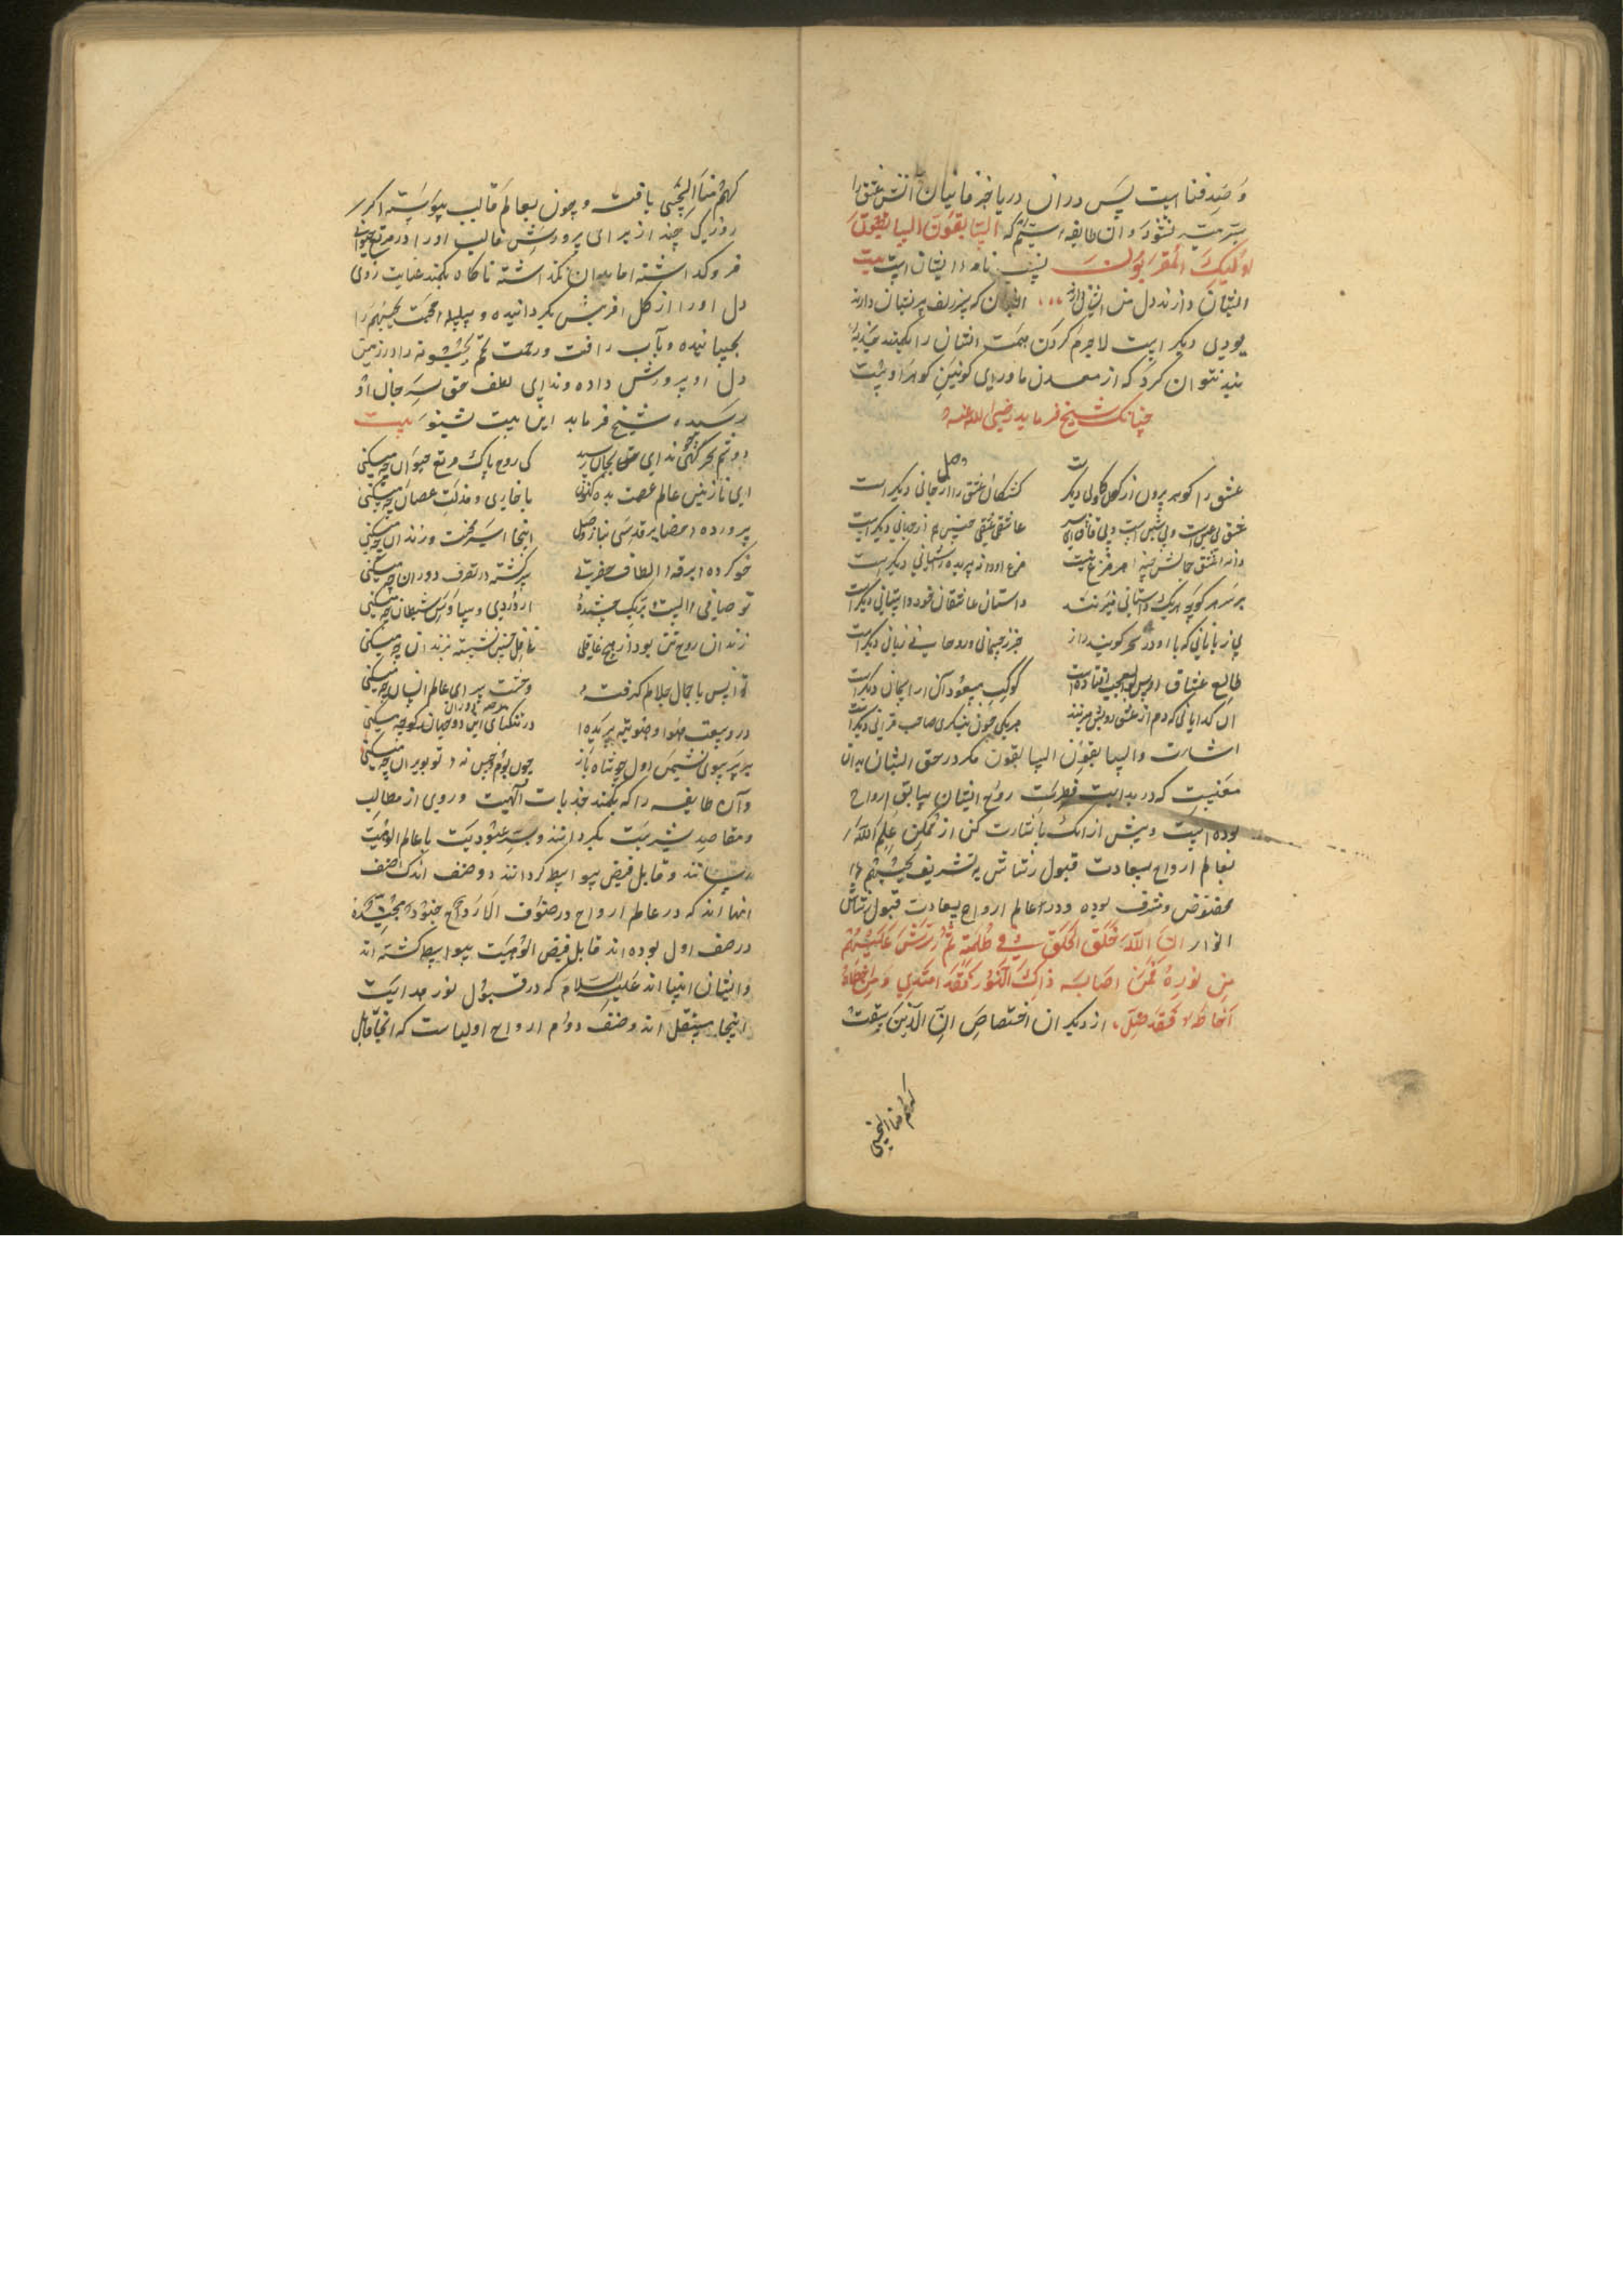 و صید فنا است پس در آن دریا جز مانیان آتش عشق را
نشود و آن طایفه که السَّابقُونَ السابقون
اولئِكَ المُقرّبُونَ نام ایشان است بیت
ایشان دارند دل من ایشان دارند ایشان که سر زلف پریشان دارند
دیگر است لاجرم کردن همت ایشان را بکمند
بند نتوان کرد که از معدن ماورای کونین کوهر اوست
چنانک شیخ فرماید رضی الله عنه
عشق را کوهر برون از کون کانی دیگرست کشتکان عشق را از وصل جانی دیگر است
عشق بی عین است و بی شین است و بی قاف ای پسر عاشق عشقی چنین هم از جهانی دیگر است
دانه عشق جمالش چینه هر مرغ نیست مرغ او دانه پریده ز آشیانی دیگر است
بر سر هر کوچه هر یک داستانی میزنند داستان عاشقان خود داستانی دیگر است
بی زبانانی که با او در سحر کویند راز جز جسمانی و روحانی زبانی دیگر است
طالع عشاق او بس بوالعجب افتاده است کوکب مسعودشان از آسمان دیگر است
آن کدایانی که دم از عشق رویش میزنند هر یکی چون بنگری صاحب قرانی دیگر است
اشارت والسابقون السابقون مکر در حق ایشان بدان
معنیست که در بدایت فطرت روح ایشان سابق ارواح
بوده است و پیش از آنک باشارت کن از ممکن علم الله
بعالم ارواح بسعادت قبول رشاش تشریف یحبهم
مخصوص و مشرف بوده و در عالم ارواح بسعادت قبول رشاش
انوار اِنَّ اللّهَ خَلَقَ الخَلقَ فی ظُلمَةٍ ثُمَّ رَشَّ عَلَیهِم
مِن نُورِهِ فَمَن اصَابَهُ ذلِكَ النُّور فَقَد اهتَدی وَ مَن اخطأ
فَقَد ضَلَّ، از دیگران اختصاص اِنَّ الَّذِینَ سبقت
لهم منا الحسنی
کهم منا الحسنی یافت و چون بعالم قالب پیوسته اکر
روزکی چند از برای پرورش قالب او را در مرتع حیوانی
فرو کداشته اما بدان نکذاشته ناکاه بکمند عنایت روی
دل او را از کل آفرینش بکردانیده و بسلسله محبت یحبهم را
بجنبانیده و بآب رافت و رحمت تخم یحبونه را در زمین
دل او پرورش داده و ندای لطف حق بسر جان او
رسیده، شیخ فرماید این بیت شنو بیت
دوشم سحر کهی ندای حق بجان رسید کی روح پاک مرتع حیوان چه میکنی
ای نازنین عالم عصمت بده کنون با خواری و مذلت عصیان چه میکنی
پرورده حضایر قدسی بناز وصل اینجا اسیر محنت و زندان چه میکنی
خو کرده برقه الطاف حضرتی سرکشته در تصرف دوران چه میکنی
تو صافی الست بربک چشیدهٔ از دردی و ساوس شیطان چه میکنی
زندان روح تن بود ار هیچ غافلی غافل چنین نشسته بزندان چه میکنی
تو انس با جمال جلالم کرفته وحشت سرای عالم انسان چه میکنی
در وسعت هوا و هویتم پریدهٔ در تنکنای این دو جهان چه میکنی
پر بسوی نشیمن اول چو شاه باز چون بوم خس نهٔ تو بویران چه میکنی
و آن طایفه را که بکمند جذبات الهیت و روی از مطالب
و مقاصد بشریت بکردانند و سر عبودیت با عالم الوهیت
رسانند و قابل فیض بیواسط کردانند دو صنف اند یک صنف
انها اند که در عالم ارواح در صفوف الارواح جنود مجندة
در صف اول بوده اند قابل فیض الوهیت بیواسط کشته اند
و ایشان انبیا اند علیهم السلام که در قبول نور هدایت
اینجا مستقل اند و صنف دوم ارواح اولیاست که آنجا قابل